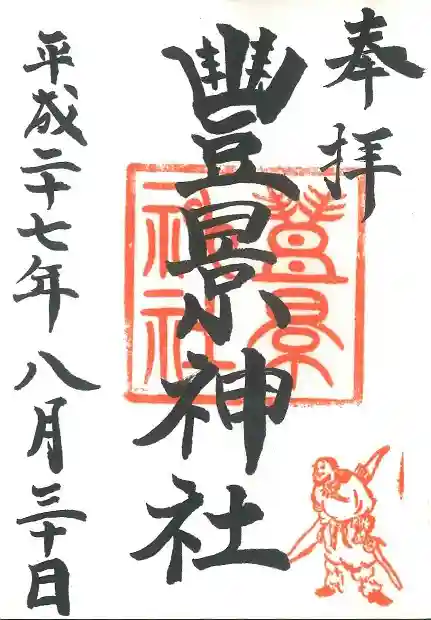 奉拝
豐景神社
豊景神社
平成二十七年八月三十日